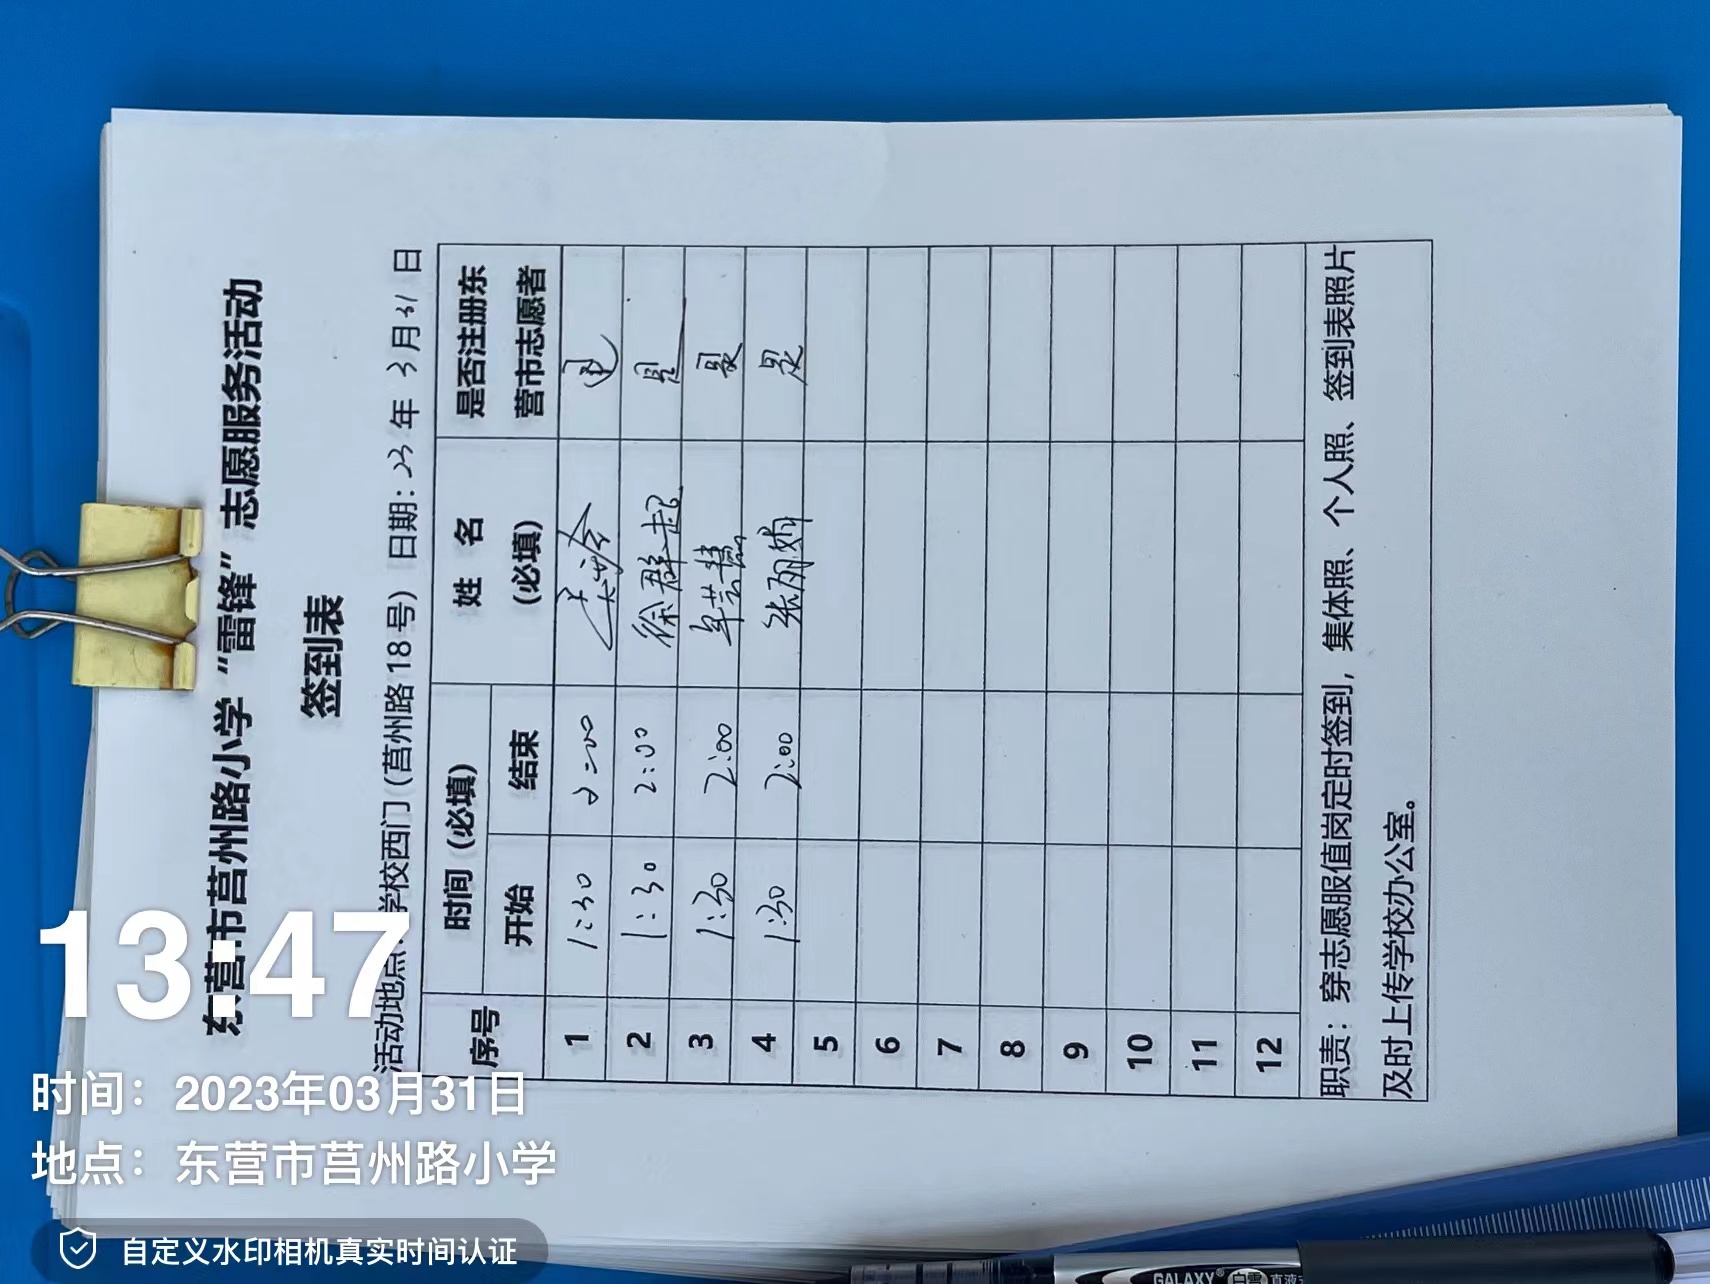 东营市莒州路小学“雷锋”志愿服务活动
签到表
活动地点：学校西门（莒州路18号）日期：23年 3月31日
序号 时间（必填） 姓 名（必填） 是否注册东营市志愿者
开始 结束
1 1:30 2:00 是
2 1:30 2:00 徐群超 是
3 1:30 2:00 牟芸慧 是
4 1:30 2:00 张丽娟 是
5
6
7
8
9
10
11
12
职责：穿志愿服值岗定时签到，集体照、个人照、签到表照片
及时上传学校办公室。
13:47
时间：2023年03月31日
地点：东营市莒州路小学
自定义水印相机真实时间认证
GALAXY® 白雪 直液式